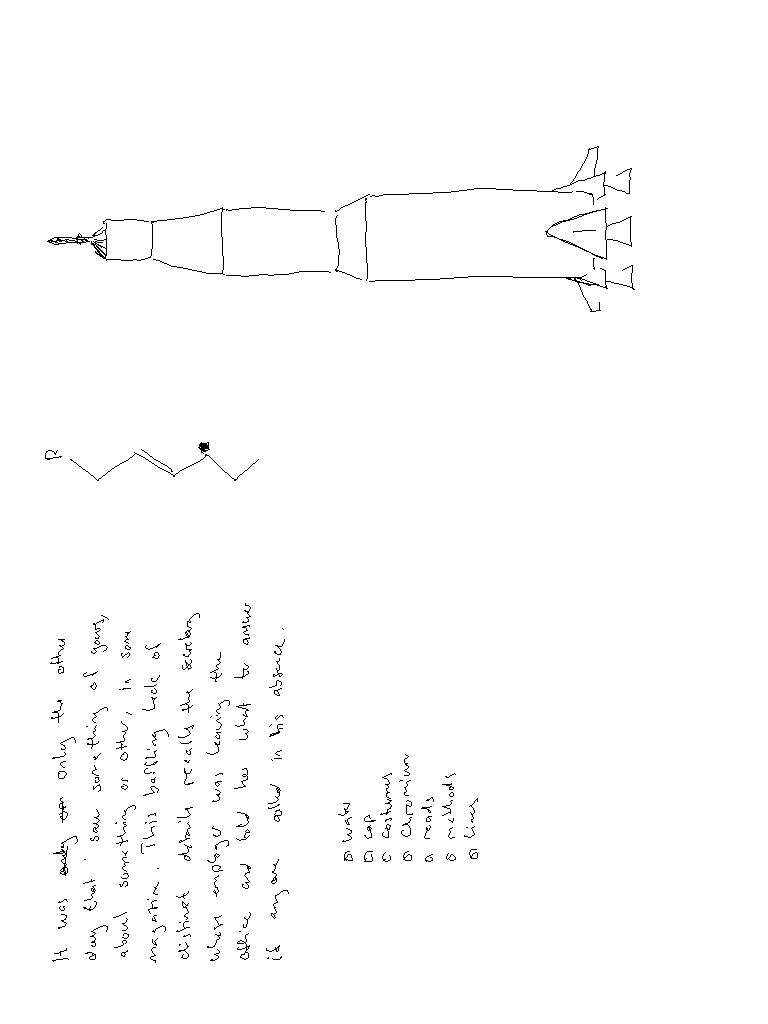 It was only the other
day that I saw something of yours,
about something or other, in some
magazine. This baffling lack of
distinct details recalls the secretary
whose employer was leaving the
office and told her what to answer
if anyone called in his absence.
water
cap
costumes
Chromium
reads
methods
lines
R